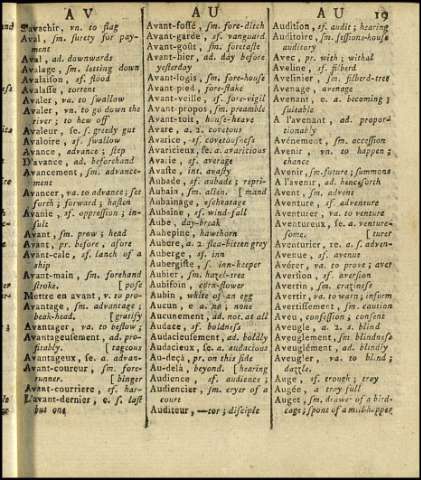 A V
A U
A U 19
S'avachir, vn. to flag
Aval, sm. surety for pay-
ment
Aval, ad. downwards
Avalage, sm. letting down
Avalaison, sf. flood
Avalasse, torrent
Avaler, va. to swallow
Avaler, vn. to go down the
river; to hew off
Avaleur, se. f. greedy gut
Avaloire, sf. swallow
Avance, advance; step
D'avance, ad. beforehand
Avancement, sm. advance-
ment
Avancer, va. to advance; set
forth; forward; hasten
Avanie, sf. oppression; in-
sult
Avant, sm. prow; head
Avant, pr. before, afore
Avant-cale, sf. lanch of a
ship
Avant-main, sm. forehand
stroke. [pose
Mettre en avant, v. to pro-
Avantage, sm. advantage;
beak-head. [gratify
Avantager, va. to bestow;
Avantageusement, ad. pro-
fitably. [tageous
Avantageux, se. a. advan-
Avant-coureur, sm. fore-
runner. [binger
Avant-courriere, sf. har-
L'avant-dernier, e. s. last
but one
Avant-fossé, sm. fore-ditch
Avant-garde, sf. vanguard
Avant-goût, sm. foretaste
Avant-hier, ad. day before
yesterday
Avant-logis, sm. fore-house
Avant-pied, fore-stake
Avant-veille, sf. fore-vigil
Avant-propos, sm. preamble
Avant-toit, house-heave
Avare, a. 2. covetous
Avarice, sf. covetousness
Avaricieux, se. a. avaricious
Avarie, sf. average
Avaste, int. avasty
Aubade, sf. aubade; repri-
Aubain, sm. alien. [mand
Aubainage, escheatage
Aubaine, sf. wind-fall
Aube, day-break
Aubepine, hawthorn
Aubere, a. 2. flea-bitten grey
Auberge, sf. inn
Aubergiste, s. inn-keeper
Aubier, sm. hazel-tree
Aubifoin, corn-flower
Aubin, white of an egg
Aucun, e. a. no; none
Aucunement, ad. not at all
Audace, sf. boldness
Audacieusement, ad. boldly
Audacieux, se. a. audacious
Au-deçà, pr. on this side
Au-delà, beyond. [hearing
Audience, sf. audience;
Audiencier, sm. cryer of a
court
Auditeur, —tor; disciple
Audition, sf. audit; hearing
Auditoire, sm. sessions-house
auditory
Avec, pr. with; withal
Aveline, sf. filberd
Avelinier, sm. filberd-tree
Avenage, avenage
Avenant, e. a. becoming;
suitable
A l'avenant, ad. propor-
tionably
Avénement, sm. accession
Avenir, vn. to happen;
chance
Avenir, sm. future; summons
A l'avenir, ad. henceforth
Avent, sm. advent
Aventure, sf. adventure
Aventurer, va. to venture
Aventureux, se. a. venture-
some. [turer
Aventurier, re. a. s. adven-
Avenue, sf. avenue
Avérer, va. to prove; aver
Aversion, sf. aversion
Avertin, sm. craziness
Avertir, va. to warn; inform
Avertissement, sm. caution
Aveu, confession; consent
Aveugle, a. 2. s. blind
Aveuglement, sm. blindness
Aveuglément, ad. blindly
Aveugler, va. to blind;
dazzle.
Auge, sf. trough; tray
Augée, a tray full
Auget, sm. drawer of a bird-
cage; spout of a mill-hopper